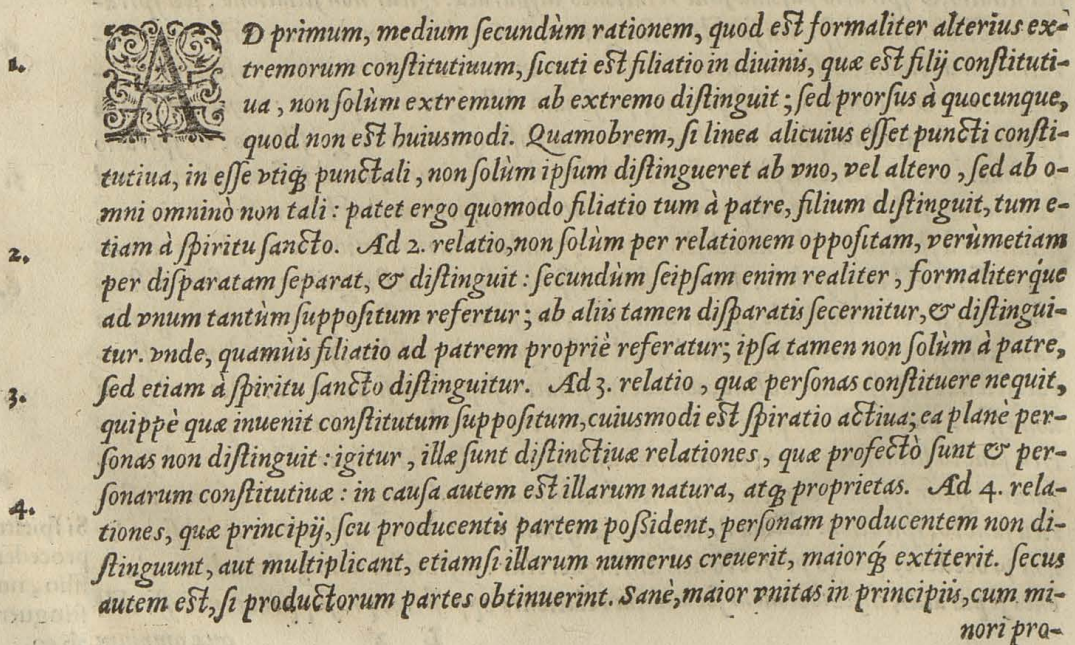 1. AD primum, medium secundùm rationem, quod est formaliter alterius ex-
tremorum constitutiuum, sicuti est filiatio in diuinis, quæ est filij constituti-
ua, non solùm extremum ab extremo distinguit; sed prorsus à quocunque,
quod non est huiusmodi. Quamobrem, si linea alicuius esset puncti consti-
tutiua, in esse vtiq; punctali, non solùm ipsum distingueret ab vno, vel altero, sed ab o-
mni omninò non tali: patet ergo quomodo filiatio tum à patre, filium distinguit, tum e-
2. tiam à spiritu sancto. Ad 2. relatio, non solùm per relationem oppositam, verùmetiam
per disparatam separat, & distinguit: secundùm seipsam enim realiter, formaliterq́ue
ad vnum tantùm suppositum refertur; ab aliis tamen disparatis secernitur, & distingui-
tur. vnde, quamùis filiatio ad patrem propriè referatur; ipsa tamen non solùm à patre,
3. sed etiam à spiritu sancto distinguitur. Ad 3. relatio, quæ personas constituere nequit,
quippè quæ inuenit constitutum suppositum, cuiusmodi est spiratio actiua; ea planè per-
sonas non distinguit: igitur, illæ sunt distinctiuæ relationes, quæ profectò sunt & per-
4. sonarum constitutiuæ: in causa autem est illarum natura, atq; proprietas. Ad 4. rela-
tiones, quæ principij, seu producentis partem possident, personam producentem non di-
stinguunt, aut multiplicant, etiamsi illarum numerus creuerit, maiorq́; extiterit. secus
autem est, si productorum partes obtinuerint. Sanè, maior vnitas in principiis, cum mi-
nori pro-